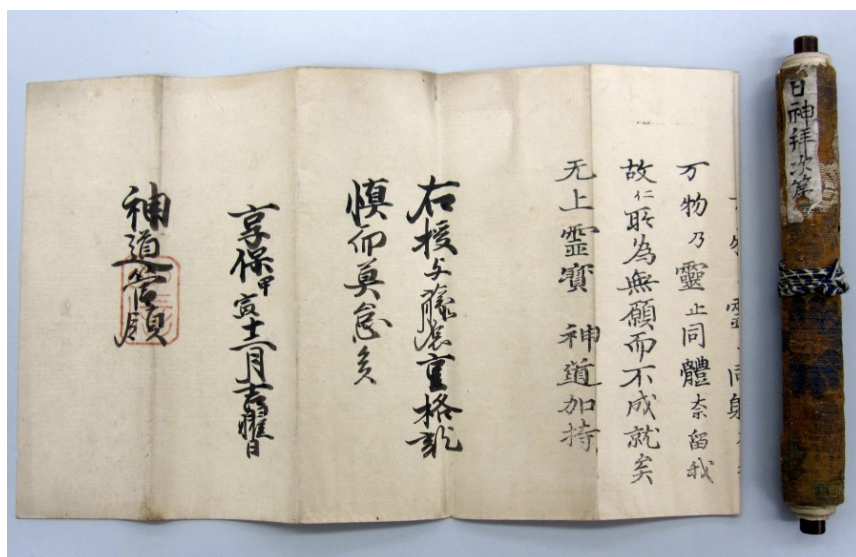 日神拝次第
万物乃靈止同體奈留我
故仁所為無願而不成就矣
无上靈寳 神道加持
右授与藤原重格訖
慎而莫怠矣
享保甲寅十二月吉曜日
神道管領